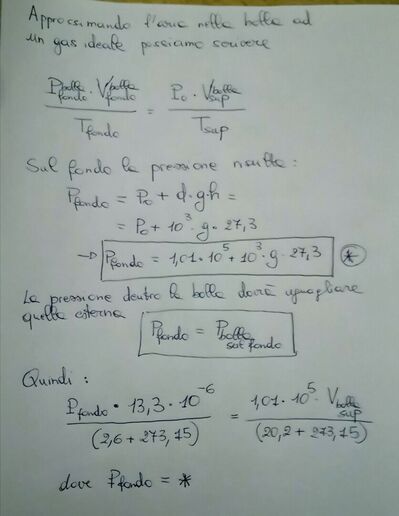 Approssimando l'aria nella bolla ad
un gas ideale possiamo scrivere
P bolla fondo · V bolla fondo / T fondo = P₀ · V bolla sup / T sup
Sul fondo la pressione risulta:
P fondo = P₀ + d·g·h =
= P₀ + 10³ · g · 27,3
→ P fondo = 1,01 · 10⁵ + 10³ · g · 27,3 *
La pressione dentro la bolla dovrà uguagliare
quella esterna
P fondo = P bolla sul fondo
Quindi:
P fondo · 13,3 · 10⁻⁶ / (2,6 + 273,15) = 1,01 · 10⁵ · V bolla sup / (20,2 + 273,15)
dove P fondo = *